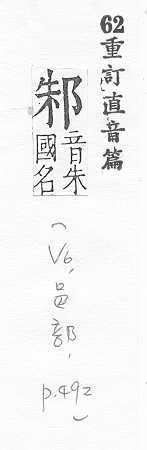 62重訂直音篇
邾音朱國名
(V6,邑部,p.492)